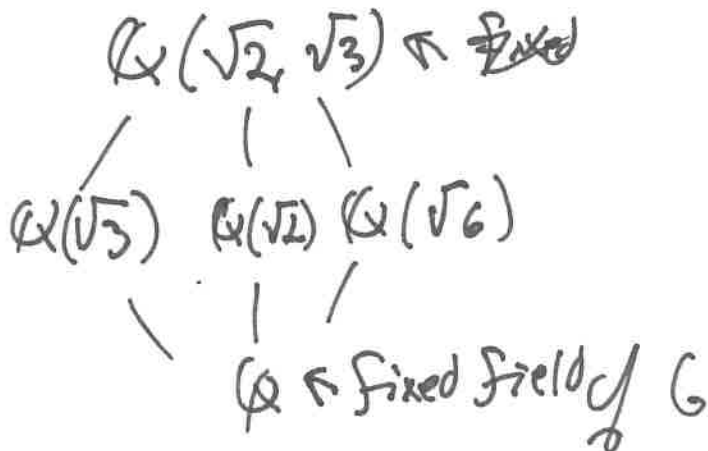 ℚ(√2, √3) ↖ fixed
ℚ(√3) ℚ(√2) ℚ(√6)
ℚ ↖ fixed field of G